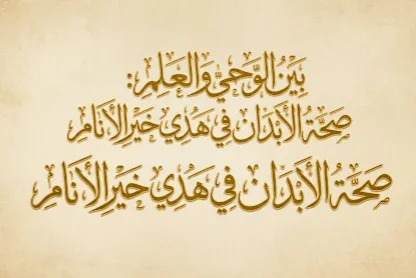 بَيْنَ الْوَحْيِ وَالْعِلْمِ:
صِحَّةُ الْأَبْدَانِ فِي هَدْيِ خَيْرِ الْأَنَامِ
صِحَّةُ الْأَبْدَانِ فِي هَدْيِ خَيْرِ الْأَنَامِ